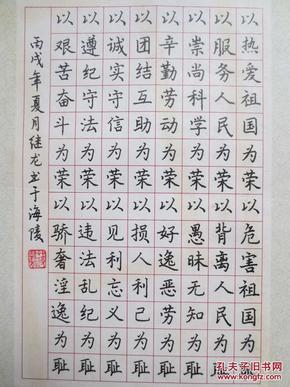 以热爱祖国为荣以危害祖国为耻
以服务人民为荣以背离人民为耻
以崇尚科学为荣以愚昧无知为耻
以辛勤劳动为荣以好逸恶劳为耻
以团结互助为荣以损人利己为耻
以诚实守信为荣以见利忘义为耻
以遵纪守法为荣以违法乱纪为耻
以艰苦奋斗为荣以骄奢淫逸为耻
丙戌年夏月继龙书于海陵